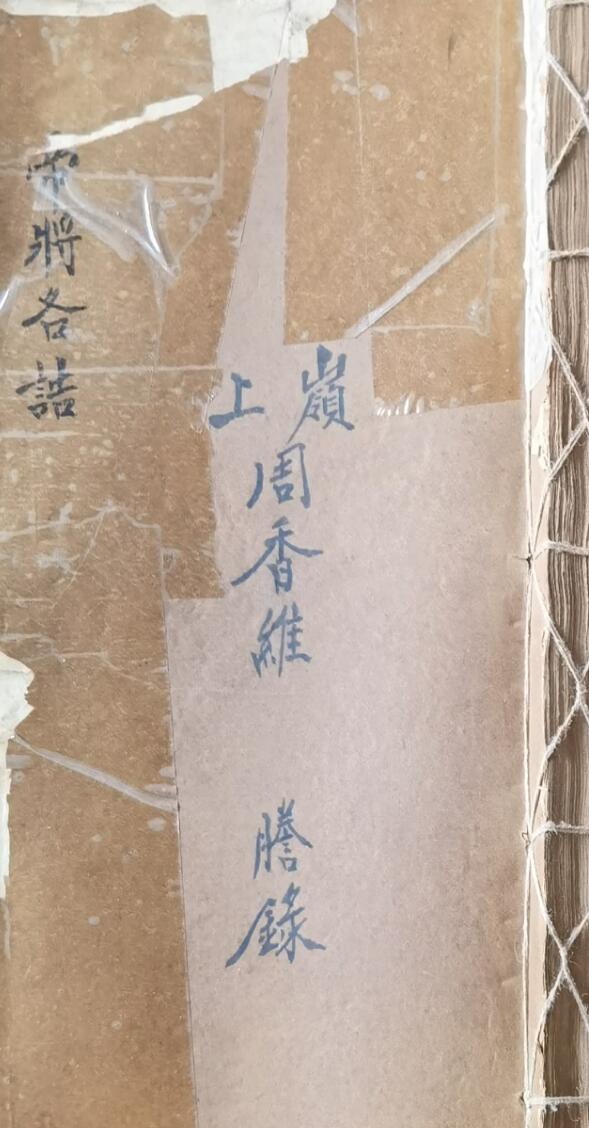 嶺上
周香維 謄錄
將各誥